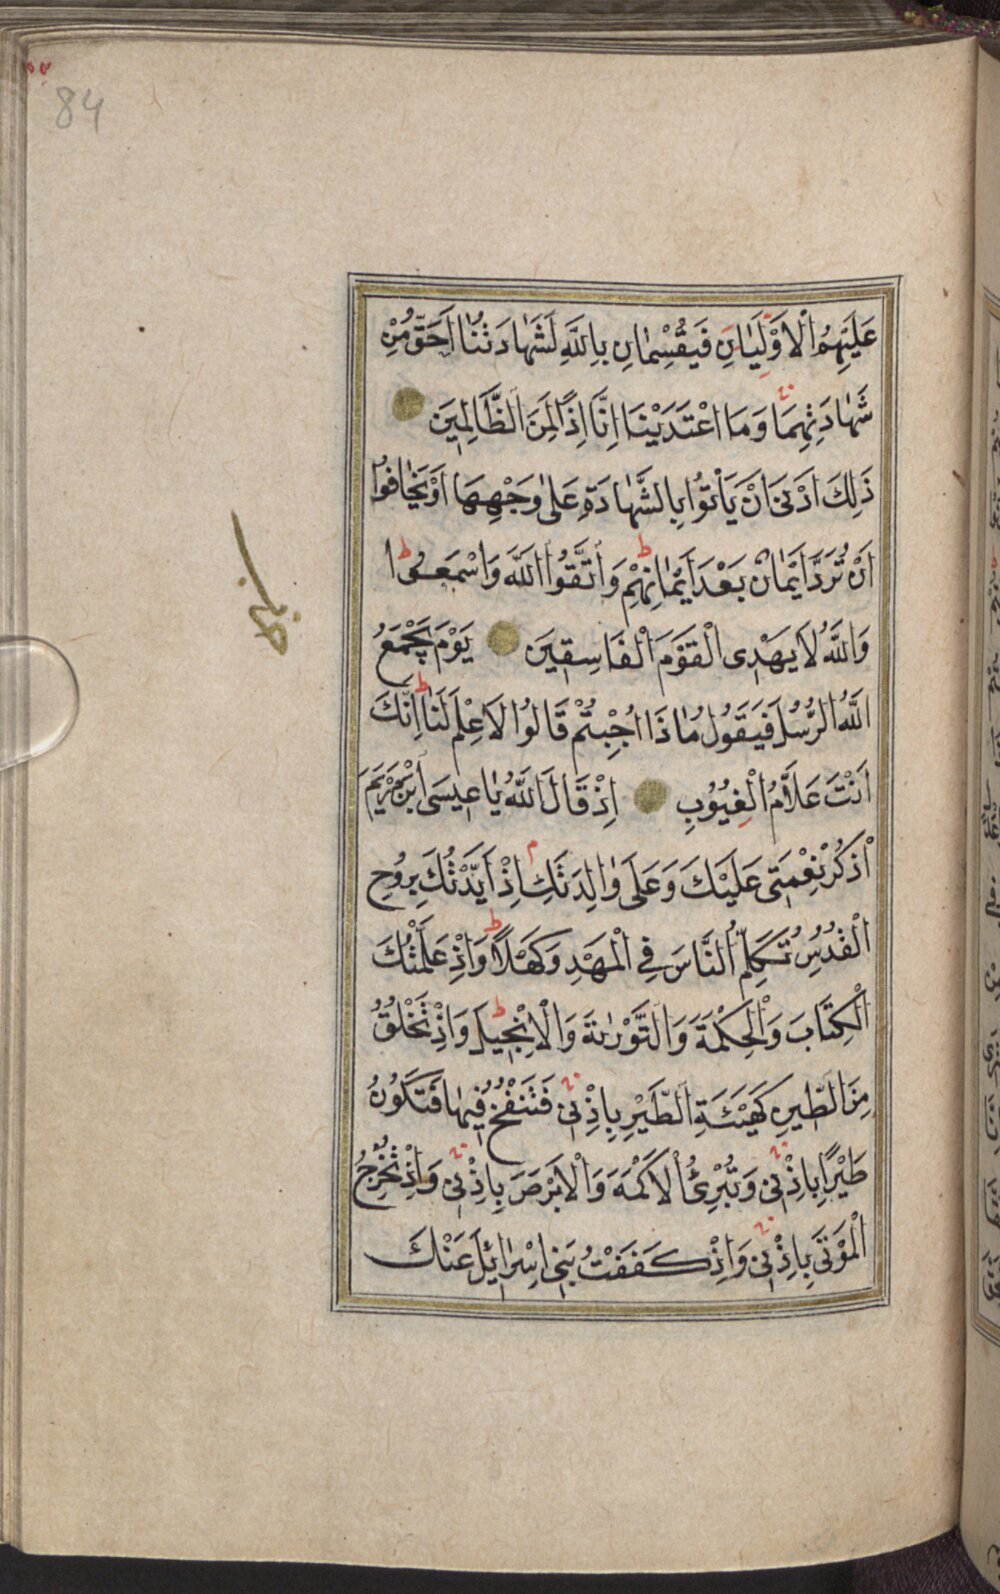 84
عَلَيْهِمُ الْاَوْلَيَانِ فَيُقْسِمَانِ بِاللّٰهِ لَشَهَادَتُنَا اَحَقُّ مِنْ
شَهَادَتِهِمَا وَمَا اعْتَدَيْنَا اِنَّا اِذًا لَمِنَ الظَّالِمِينَ
ذٰلِكَ اَدْنٰى اَنْ يَأْتُوا بِالشَّهَادَةِ عَلٰى وَجْهِهَا اَوْ يَخَافُوا
اَنْ تُرَدَّ اَيْمَانٌ بَعْدَ اَيْمَانِهِمْ ط وَاتَّقُوا اللّٰهَ وَاسْمَعُوا ط
وَاللّٰهُ لَا يَهْدِى الْقَوْمَ الْفَاسِقِينَ يَوْمَ يَجْمَعُ
اللّٰهُ الرُّسُلَ فَيَقُولُ مَاذَا اُجِبْتُمْ قَالُوا لَا عِلْمَ لَنَا ط اِنَّكَ
اَنْتَ عَلَّامُ الْغُيُوبِ اِذْ قَالَ اللّٰهُ يَا عِيسَى ابْنَ مَرْيَمَ
اذْكُرْ نِعْمَتِى عَلَيْكَ وَعَلٰى وَالِدَتِكَ م اِذْ اَيَّدْتُكَ بِرُوحِ
الْقُدُسِ تُكَلِّمُ النَّاسَ فِى الْمَهْدِ وَكَهْلًا ط وَاِذْ عَلَّمْتُكَ
الْكِتَابَ وَالْحِكْمَةَ وَالتَّوْرٰيةَ وَالْاِنْجِيلَ ط وَاِذْ تَخْلُقُ
مِنَ الطِّينِ كَهَيْئَةِ الطَّيْرِ بِاِذْنِى فَتَنْفُخُ فِيهَا فَتَكُونُ
طَيْرًا بِاِذْنِى وَتُبْرِئُ الْاَكْمَهَ وَالْاَبْرَصَ بِاِذْنِى وَاِذْ تُخْرِجُ
الْمَوْتٰى بِاِذْنِى وَاِذْ كَفَفْتُ بَنِى اِسْرَائِلَ عَنْكَ